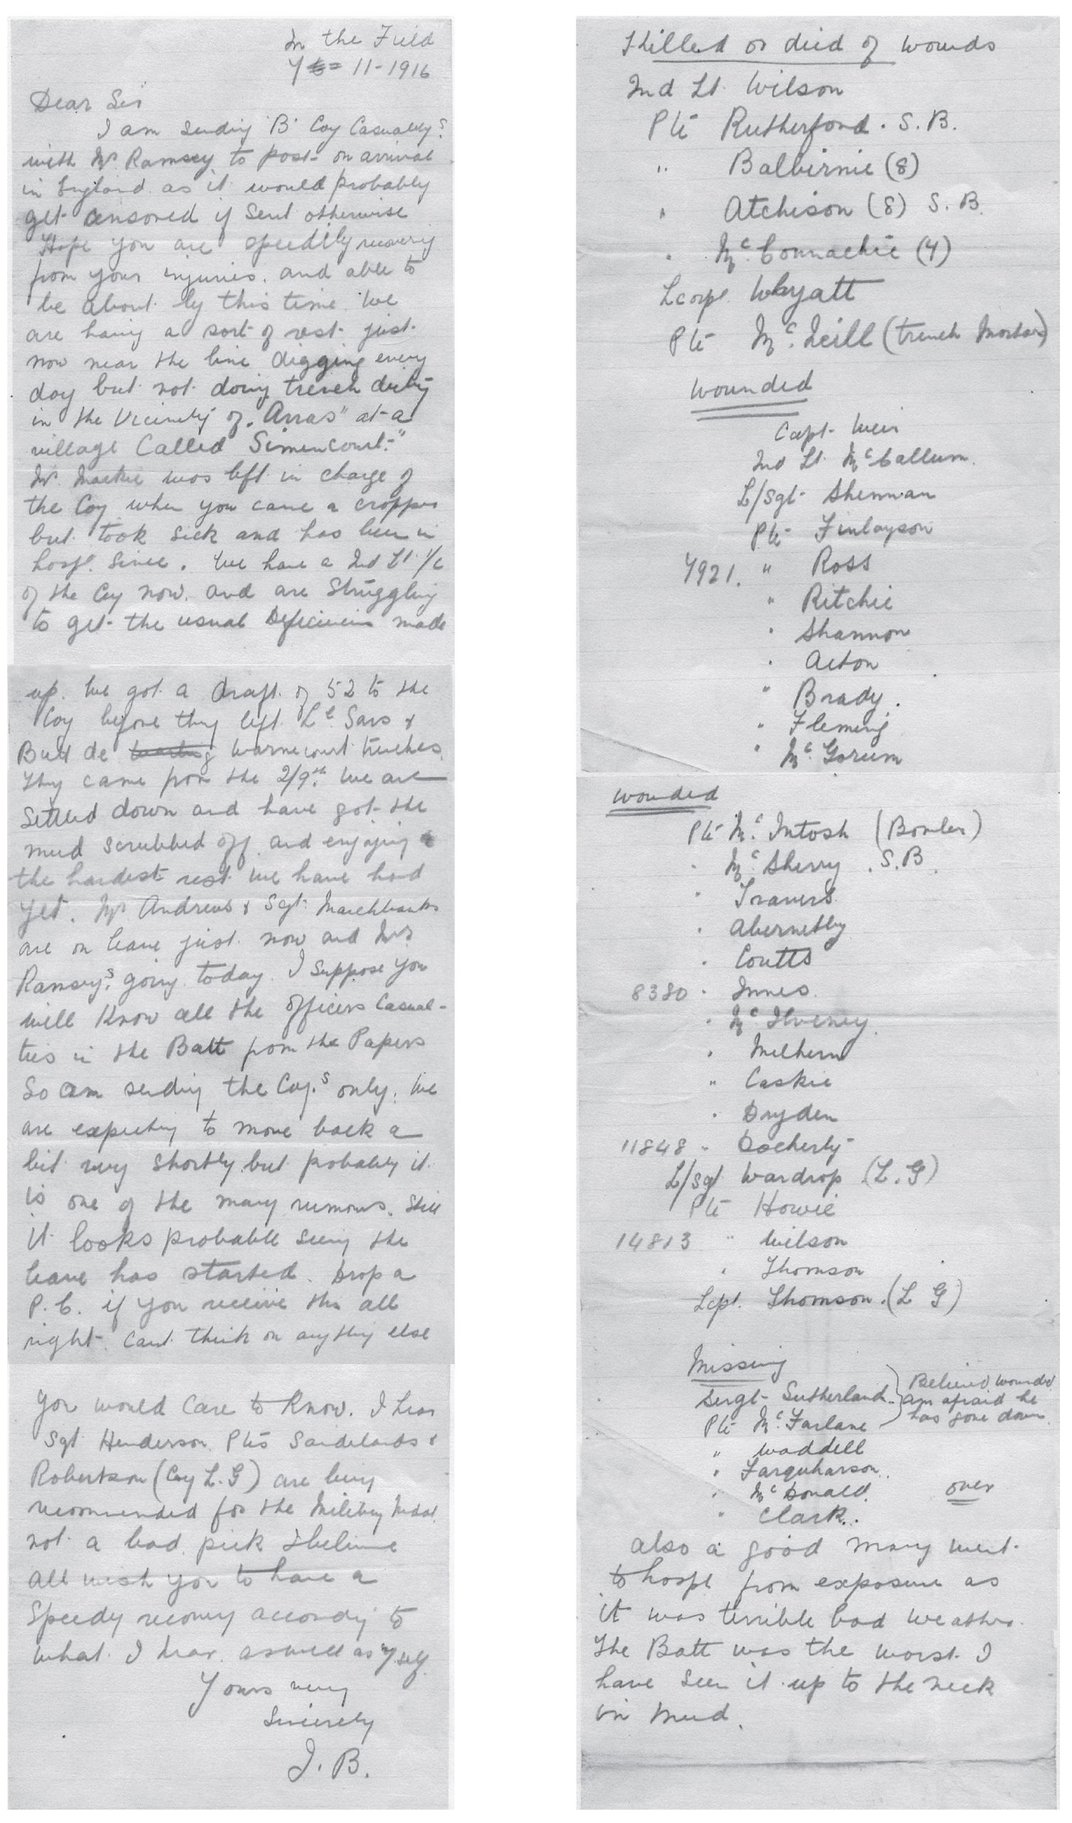 In the Field
7 11-1916
Dear Sir
I am sending 'B' Coy Casualtys
with Mr Ramsey to post on arrival
in England as it would probably
get censored if sent otherwise
Hope you are speedily recovering
from your injuries. and able to
be about by this time We
are having a sort of rest just
now near the line digging every
day but not doing trench duty
in the Vicinity of "Arras" at a
village Called "Simencourt"
Mr Mackie was left in charge of
the Coy when you came a cropper
but took sick and has been in
hospl. since. We have a 2nd Lt i/c
of the Coy now. and are struggling
to get the usual Deficiencies made
up. We got a draft of 52 to the
Coy before they left Le Sars &
Butt de Warlencourt trenches.
They came from the 2/9th. We are
settled down and have got the
mud scrubbed off and enjoying
the hardest rest we have had
yet. Mr Andrews & Sgt. Marchbanks
are on leave just now and Mr
Ramsey's going today. I suppose you
will Know all the officers Casual-
ties in the Batt from the Papers
So am sending the Coy.s only. We
are expecting to move back a
bit very shortly but probably it
is one of the many rumours. Still
it looks probable seeing the
leave has started. Drop a
P.C. if you receive this all
right. Cant think on anything else
you would care to know. I hear
Sgt Henderson Ptes Sandilands &
Robertson (Coy L.G) are being
recommended for the Military Medal
not a bad pick I believe
All wish you to have a
Speedy recovery according to
what I hear as well as myself.
Yours very
Sincerely
J. B.
Killed or died of wounds
2nd Lt Wilson
Pte Rutherford. S.B.
" Balbirnie (8)
" Atchison (8) S.B.
" McConnachie (7)
Lcorpl Whyatt
Pte McNeill (trench Mortar)
wounded
Capt. Weir
2nd Lt McCallum.
L/Sgt Sherman
Pte Finlayson
7921. " Ross
" Ritchie
" Shannon
" Acton
" Brady.
" Fleming
" McGorum
wounded
Pte McIntosh (Bomber)
" McSherry. S.B.
" Travers
" Abernethy
" Coutts
8380 " Innes.
" McIlveney.
" Milhern
" Caskie
" Dryden
11848 " Docherty
L/Sgt Wardrop (L.G)
Pte Howie
14813 " Wilson
" Thomson
Lcpl. Thomson. (L G)
Missing
Sergt Sutherland } Believe wounded
Pte McFarlane } am afraid he has gone down
" Waddell
" Farquharson.
" McDonald. over
" Clark.
also a good many went
to hospl from exposure as
it was terrible bad weather.
The Batt was the worst I
have seen it up to the neck
in mud.